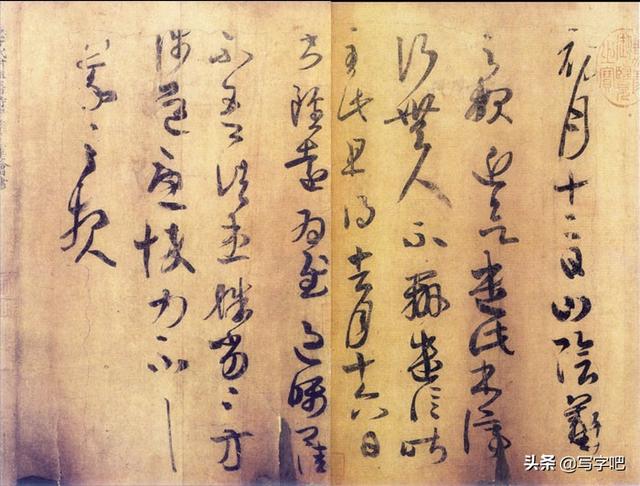 初月十二日山陰羲
之報近欲遣此書停
行無人不辦遣信昨
至此且得去月十六日
書雖遠為慰過囑卿佳
不吾諸患殊劣〻方
涉道憂悴力不一一
羲之報
头条 @写字吧